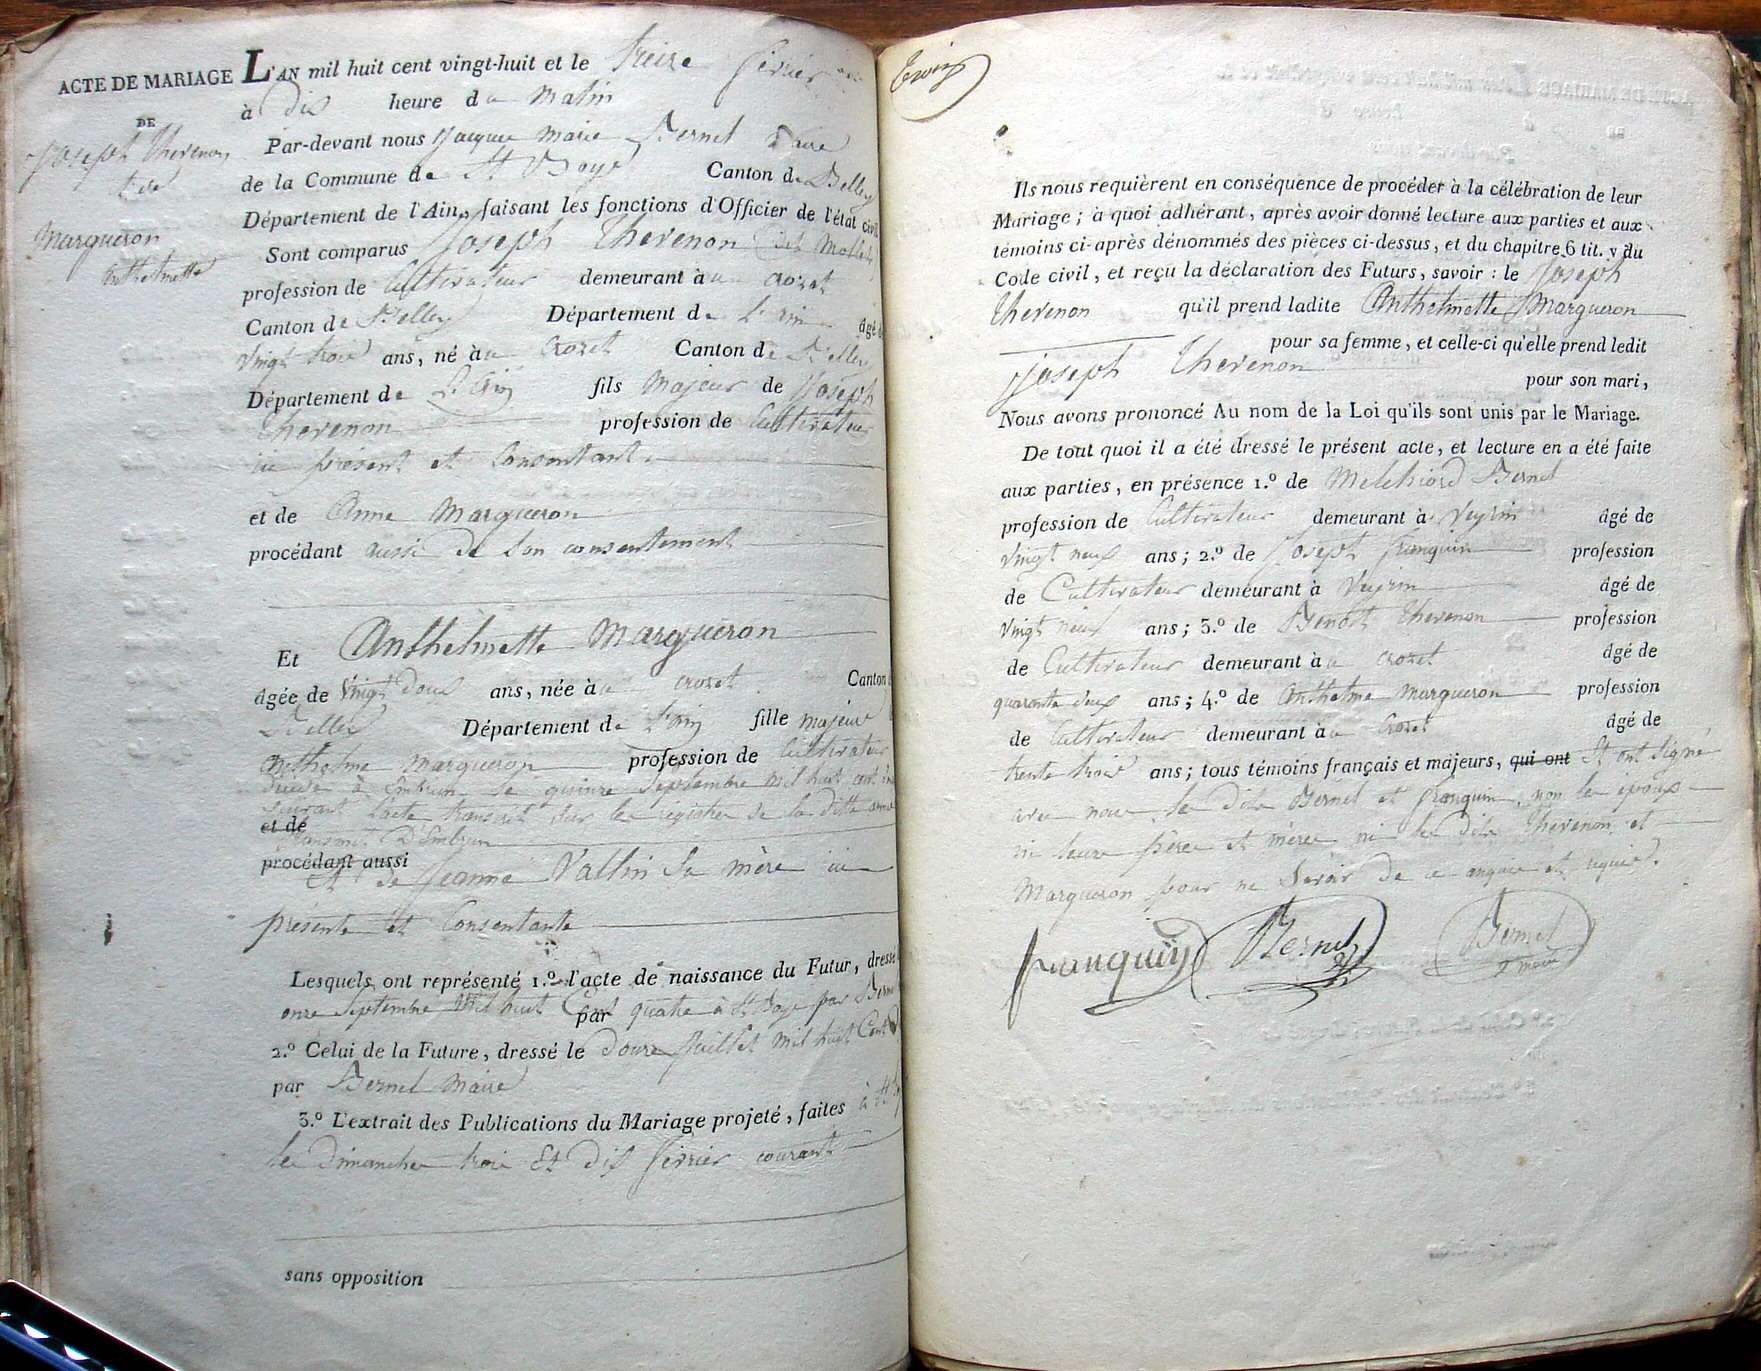 ACTE DE MARIAGE
DE
Joseph Thevenon
et de
Marqueron
Anthelmette
L'AN mil huit cent vingt-huit et le treize fevrier
à dix heure du matin
Par-devant nous Jacque Marie Bernet Maire
de la Commune de St Boye Canton de Belley
Département de l'Ain, faisant les fonctions d'Officier de l'état civil
Sont comparus Joseph Thevenon
profession de Cultivateur demeurant à au crozet
Canton de Belley Département de L'ain âgé de
vingt trois ans, né à au crozet Canton de Belley
Département de L'Ain fils majeur de Joseph
Thevenon profession de Cultivateur
ici présent et Consentant
et de Anne Marqueron
procédant aussi de son consentement
Et Anthelmette Marqueron
âgée de Vingt deux ans, née à au crozet Canton
Belley Département de L'ain fille majeur
Anthelme Marqueron profession de Cultivateur
à Embrun le quinze Septembre mil huit cent
suivant l'acte transcrit sur les registre de la ditte
et de
D'Embrun
procédant aussi
Et de Jeanne Vallin sa mère ici
présente et Consentante
Lesquels ont représenté 1.º l'acte de naissance du Futur, dressé
onze Septembre Mil huit Cent quatre à St Boye par Bernet
par
2.º Celui de la Future, dressé le douze Juillet mil huit Cent
par Bernet Maire
3.º L'extrait des Publications du Mariage projeté, faites à St
les Dimanches trois Et dix fevrier courant
sans opposition
Ils nous requièrent en conséquence de procéder à la célébration de leur
Mariage ; à quoi adhérant, après avoir donné lecture aux parties et aux
témoins ci-après dénommés des pièces ci-dessus, et du chapitre 6 tit. v du
Code civil, et reçu la déclaration des Futurs, savoir : le Joseph
Thevenon qu'il prend ladite Anthelmette Marqueron
pour sa femme, et celle-ci qu'elle prend ledit
Joseph Thevenon pour son mari,
Nous avons prononcé Au nom de la Loi qu'ils sont unis par le Mariage.
De tout quoi il a été dressé le présent acte, et lecture en a été faite
aux parties, en présence 1.º de Melchiord Bernet
profession de Cultivateur demeurant à Veyrin âgé de
vingt neuf ans ; 2.º de Joseph franquin profession
de Cultivateur demeurant à Veyrin âgé de
vingt neuf ans ; 3.º de Benoit Thevenon profession
de Cultivateur demeurant à au crozet âgé de
quarante deux ans ; 4.º de Anthelme Marqueron profession
de Cultivateur demeurant à au Crozet âgé de
trente trois ans ; tous témoins français et majeurs, qui ont Et ont signé
avec nous les dits Bernet et franquin non les époux
ni leurs pères et mères ni les dits Thevenon et
Marqueron pour ne savoir de ce enquis et requis.
franquin Bernet Bernet
maire